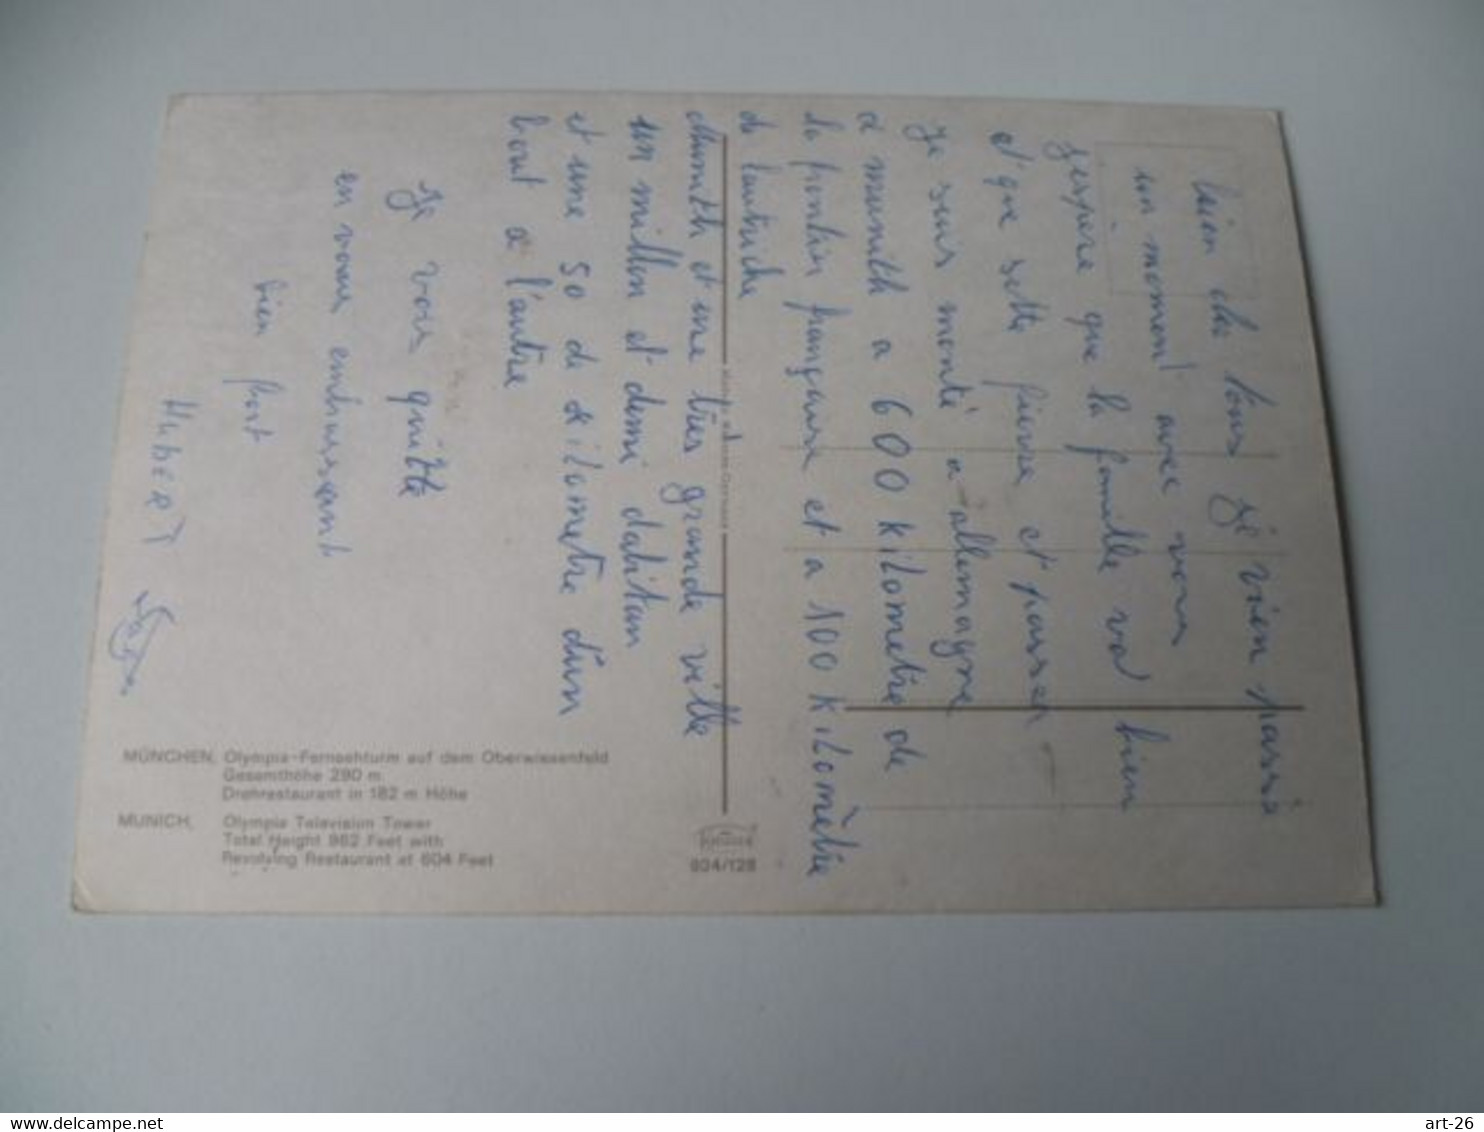 bien cher tous je vien passé
un moment avec vous
j'espère que la famille va bien
et que sette fièvre et passer
Je suis monté a allemagne
a munith a 600 kilometre de
la frontier française et a 100 kilomètre
de lautriche
Munith et une très grande ville
un millon et demi dabitan
et une 50 de kilometre d'un
bout a l'autre
Je vous quitte
en vous embrassant
bien fort
HUBERT
MÜNCHEN, Olympia-Fernsehturm auf dem Oberwiesenfeld
Gesamthöhe 290 m
Drehrestaurant in 182 m Höhe
MUNICH, Olympia Television Tower
Total Height 962 Feet with
Revolving Restaurant at 604 Feet
KRÜGER
934/128
delcampe.net
art-26